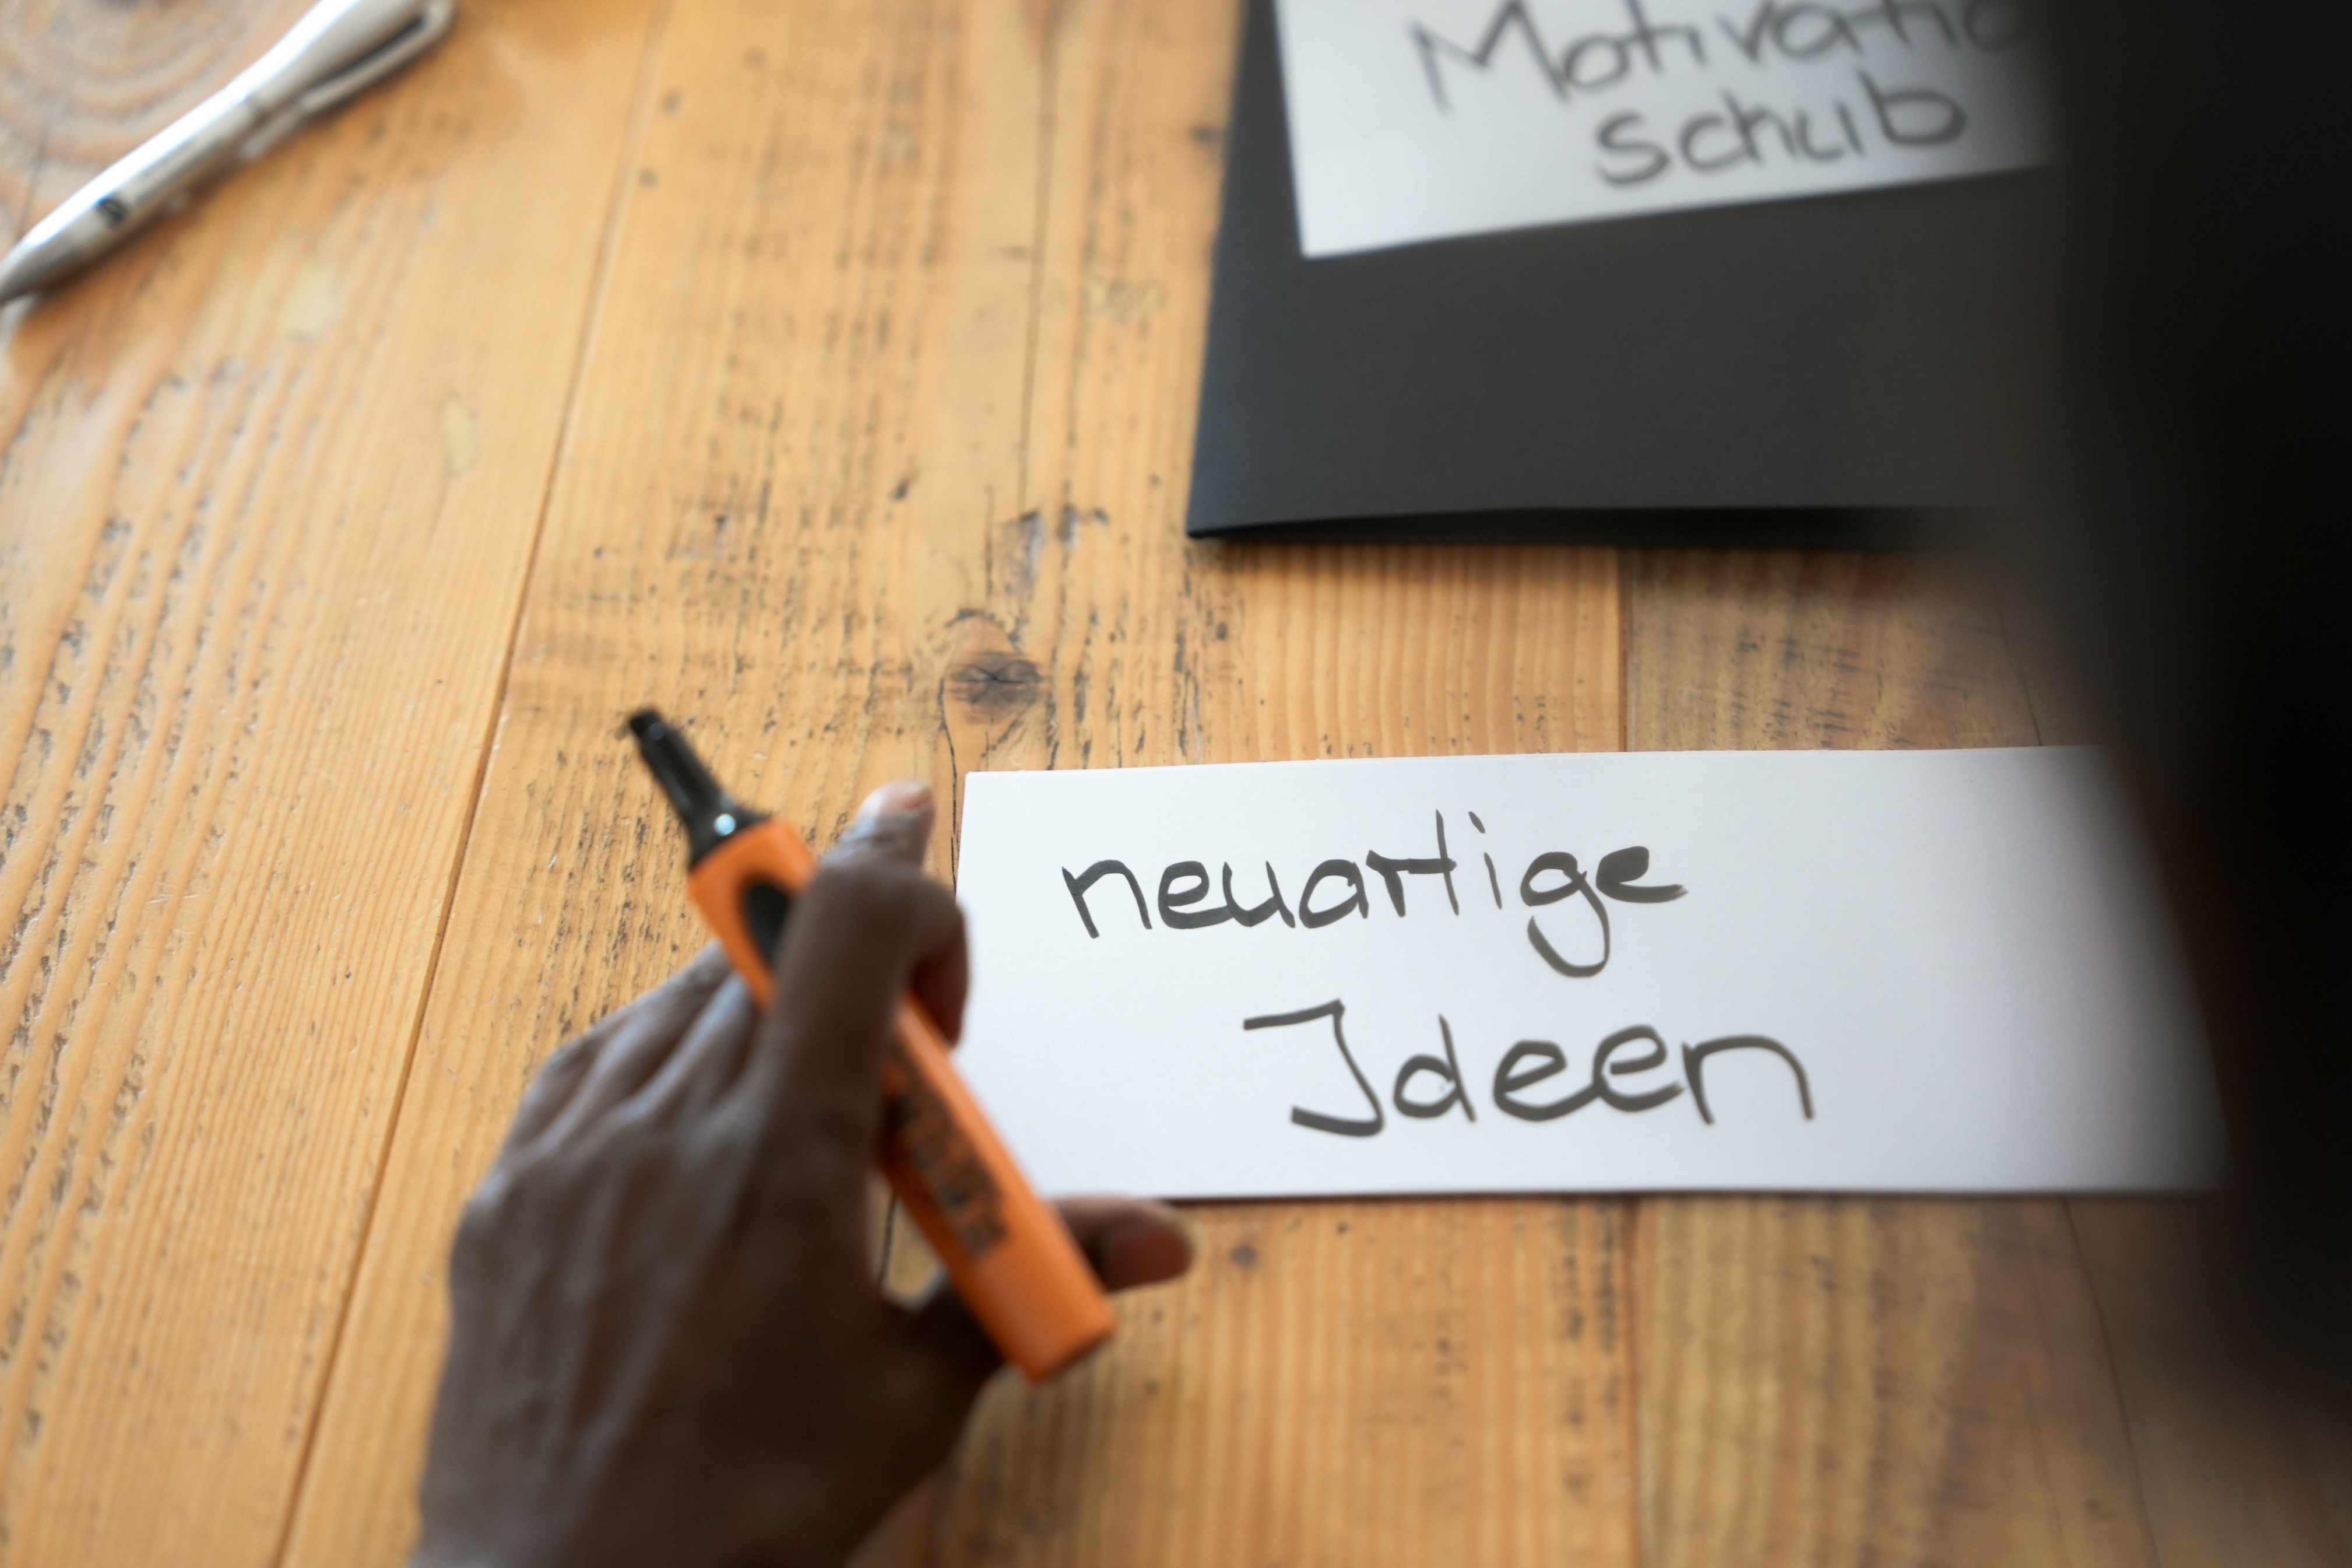 Motivatio
schub
neuartige
Ideen